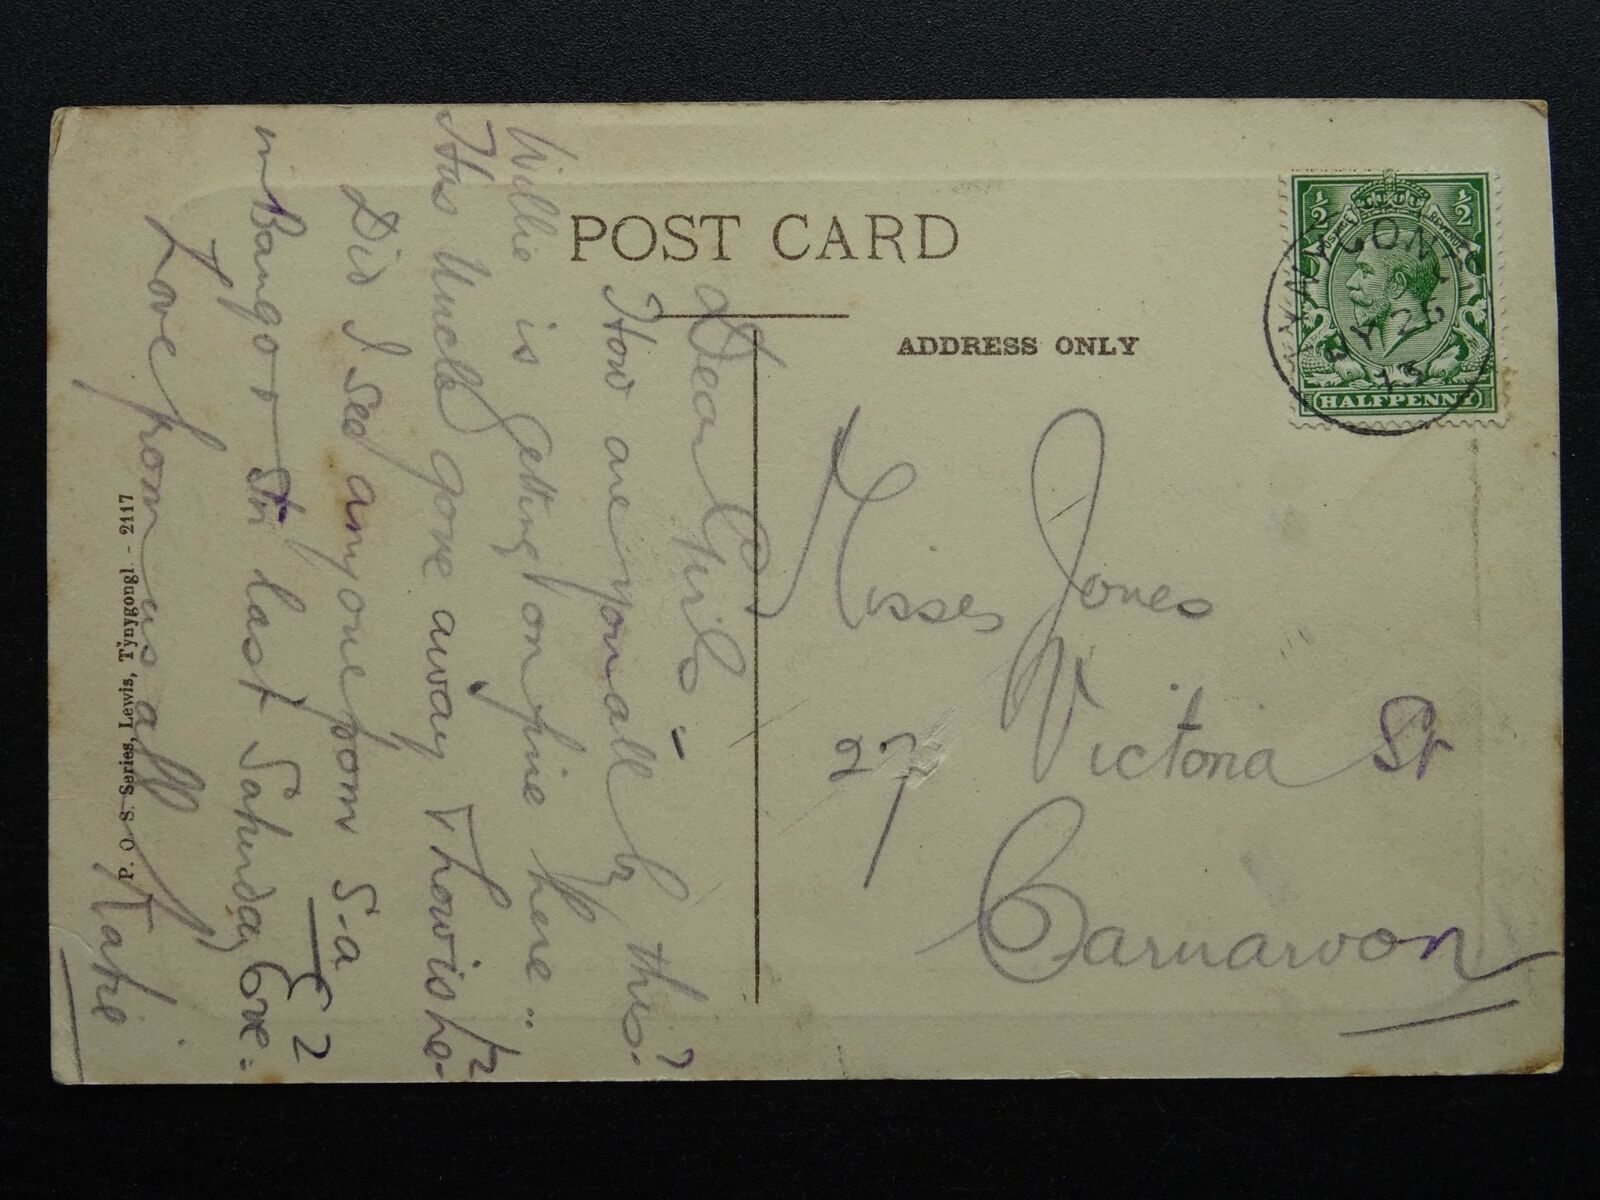 POST CARD
ADDRESS ONLY
½ ½
POSTAGE REVENUE
HALFPENNY
TYNYGONGL
MY 26
13
Misses Jones
27 Victoria St
Carnarvon
Dear Girls -
How are you all by this?
Willie is getting on fine here
Has Uncle gone away & how is he?
Did I see anyone from
in Bangor Stn last Saturday Eve:
Love from us all
Katie
P. O. S. Series, Lewis, Tŷnygongl - 2117